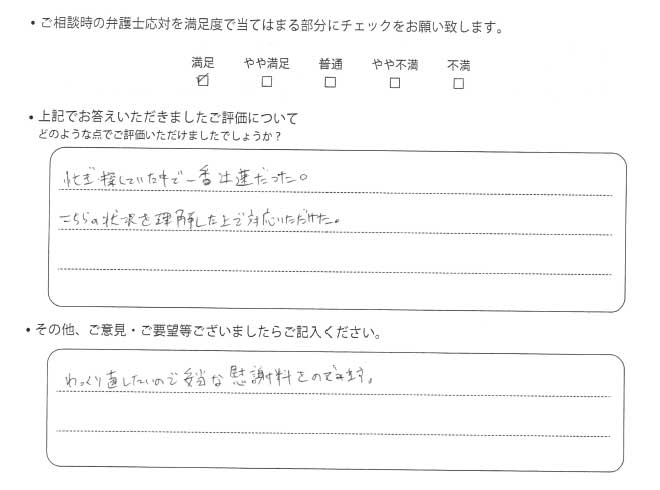 ・ご相談時の弁護士応対を満足度で当てはまる部分にチェックをお願い致します。
満足 やや満足 普通 やや不満 不満
・上記でお答えいただきましたご評価について
どのような点でご評価いただけましたでしょうか？
探していた中で一番 だった。
こちらの状況を理解した上で対応いただけた。
・その他、ご意見・ご要望等ございましたらご記入ください。
直したいので妥当な慰謝料をのぞみます。